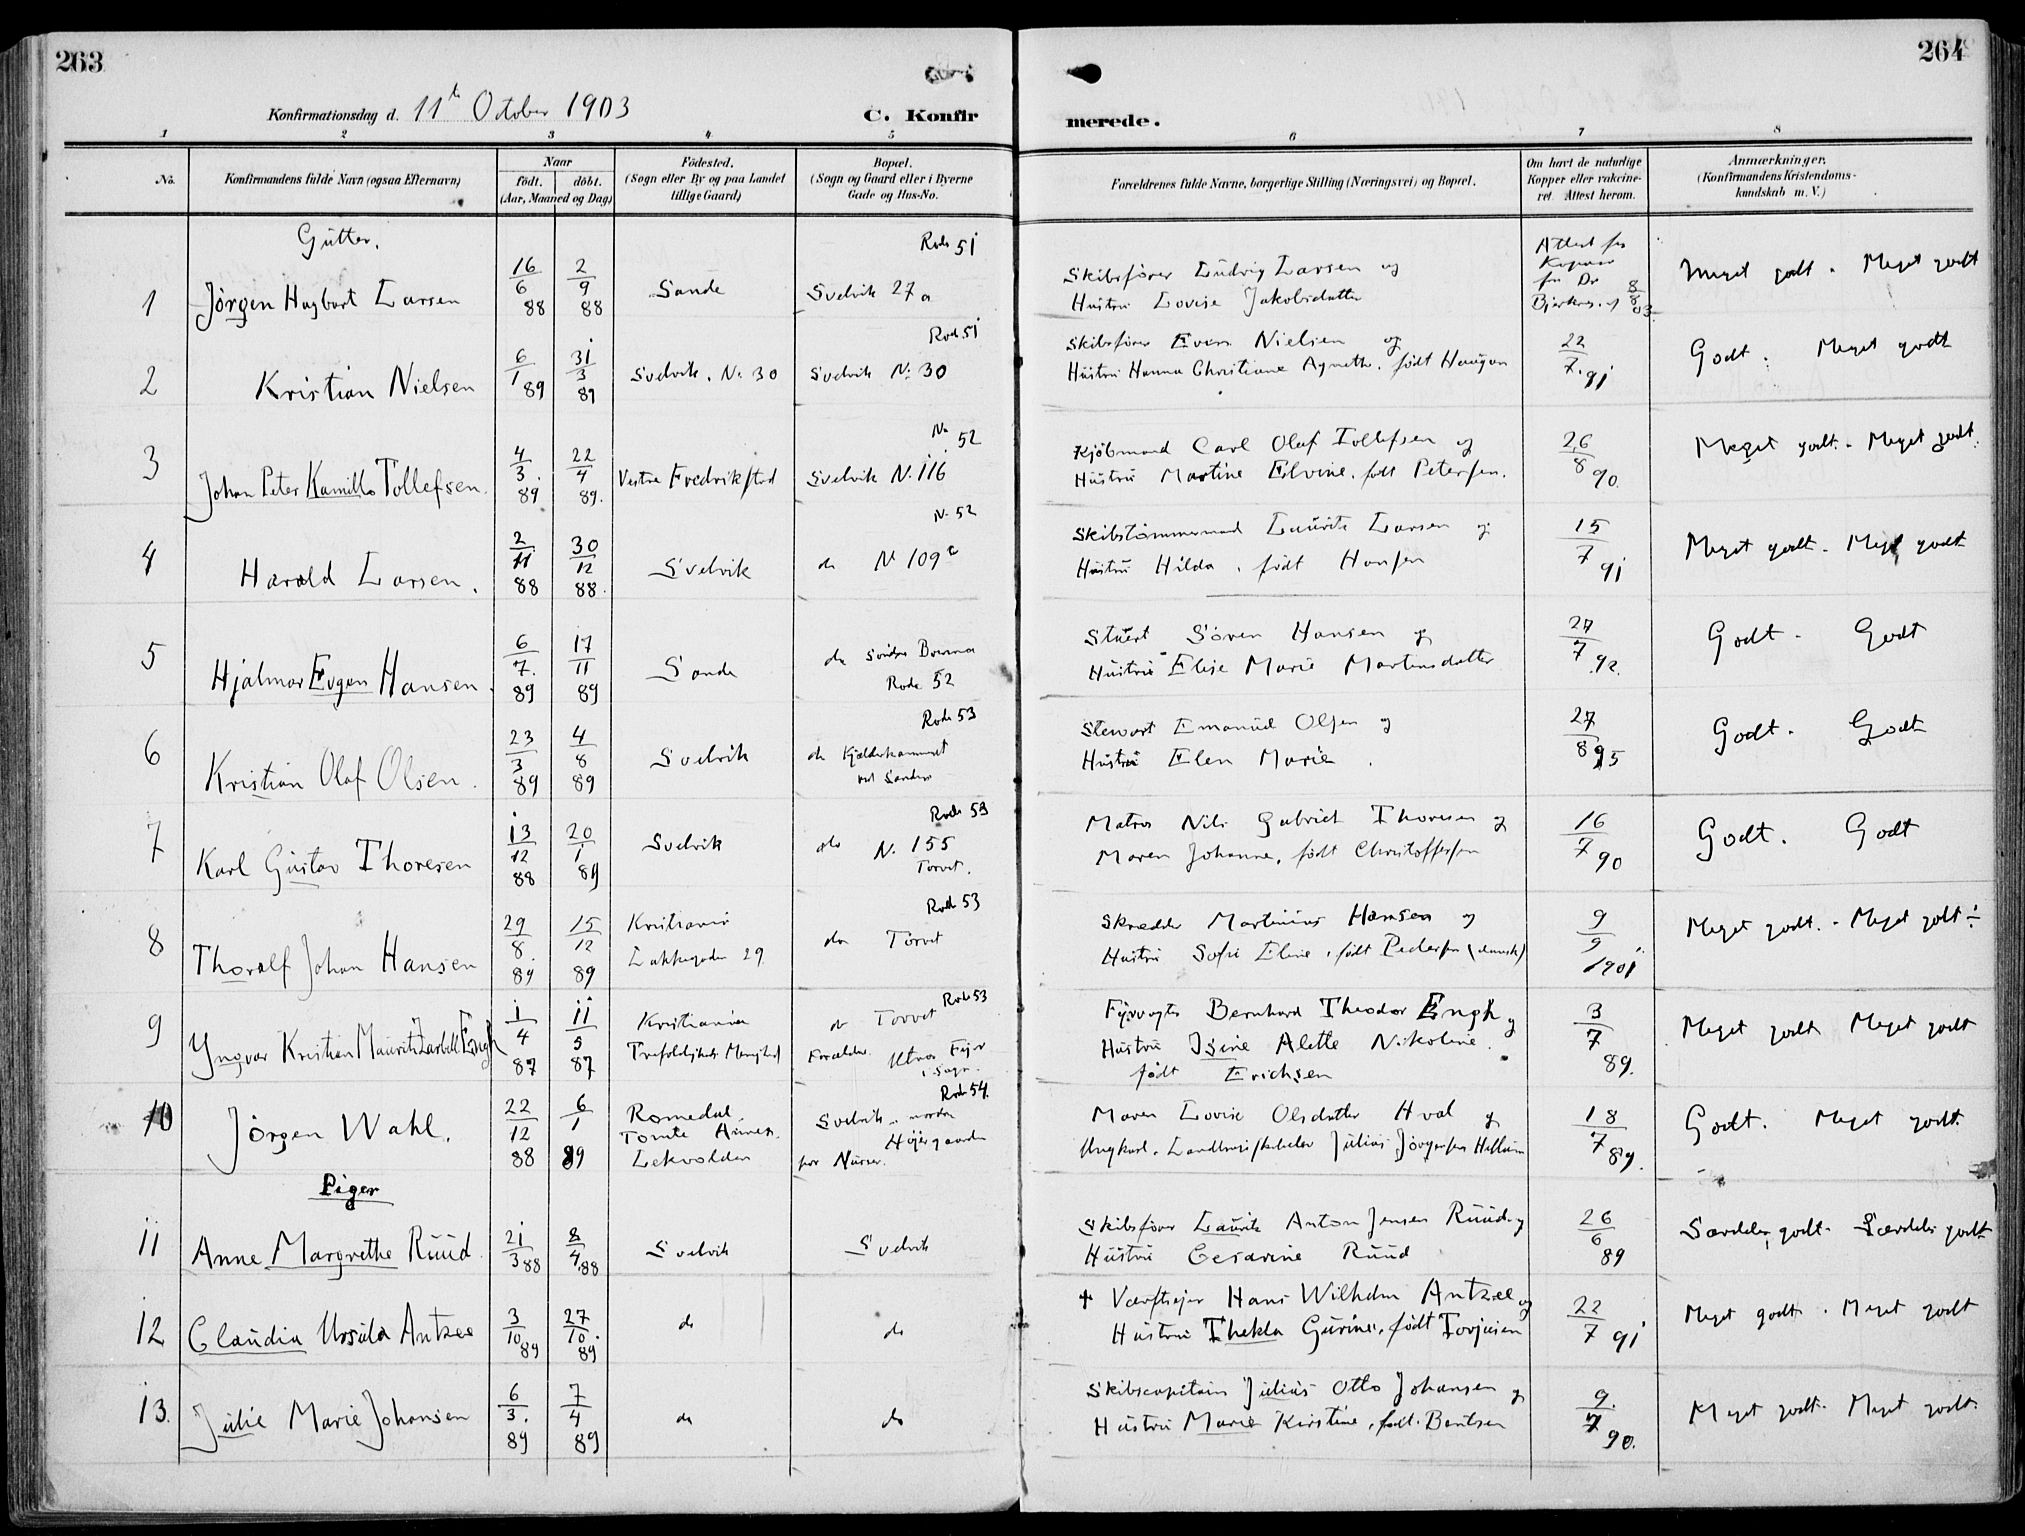 263
264
Konfirmationsdag d. 11te October 1903
C. Konfir
merede.
1 2 3 4 5 6 7 8
No.
Konfirmandens fulde Navn (ogsaa Efternavn)
Naar
født. døbt.
(Aar, Maaned og Dag)
Fødested.
(Sogn eller By og paa Landet
tillige Gaard)
Bopæl.
(Sogn og Gaard eller i Byerne
Gade og Hus-No.
Forældrenes fulde Navne, borgerlige Stilling (Næringsvei) og Bopæl.
Om havt de naturlige
Kopper eller vakcine-
ret. Attest herom.
Anmærkninger.
(Konfirmandens Kristendoms-
kundskab m. V.)
Gutter.
1 Jörgen Hagbart Larsen 16/6 88 2/9 88 Sande
Rode 51
Svelvik 27a
Skibsfører Ludvig Larsen og
Hustru Lovise Jakobsdatter
Attest for
Kopper
fra Dr
8/8 03.
Meget godt. Meget godt
2 Kristian Nielsen 6/1 89 31/3 89 Svelvik. No 30
Rode 51
Svelvik No 30
Skibsfører Even Nielsen og
Hustru Hanna Christiane Agnethe. født Haugan
22/7. 91
Godt. Meget godt
3 Johan Peter Kamillo Tollefsen. 4/3. 89 22/4 89. Vestre Fredrikstad
No 52
Svelvik No 116
Kjöbmand Carl Olaf Tollefsen og
Hustru Martine Elvine. født Petersen.
26/8 90.
Meget godt. Meget godt.
4 Harald Larsen. 2/11 88 30/12 88. Svelvik
No 52
do No 109c
Skibstömmermand Laurits Larsen og
Hustru Hilda, født Hansen
15/7 91
Meget godt. Meget godt
5 Hjalmar Eugen Hansen. 6/7. 89 17/11 89 Sande
do Söndre
Rode 52
Stuert Sören Hansen og
Hustru Elise Marie Martinsdatter
27/7 92.
Godt. Godt
6 Kristian Olaf Olsen. 23/3 89 4/8 89 Svelvik
Rode 53
do
Stewart Emanuel Olsen og
Hustru Elen Marie.
27/8 95
Godt. Godt
7 Karl Gustav Thoresen 13/12 88 20/1 89 Svelvik
Rode 53
do No. 155
Torvet.
Matros Nils Gabriel Thoresen og
Maren Johanne, født Christoffersen
16/7 90
Godt. Godt
8 Thoralf Johan Hansen 29/8. 89 15/12 89
Kristiania
Lakkegaden 29
Rode 53
do Torvet
Skrædder Martinius Hansen og
Hustru Sofie Eline, født Pedersen (dansk)
9/9 1901
Meget godt. - Meget godt ÷
9 Yngvar Kristian Maurits Engh 1/4 87 11/5 87
Kristiania
Trefoldigheds Menighed
Rode 53
do Torvet
Forældre. Fyr
Fyrvogter Bernhard Theodor Engh og
Hustru Isine Alette Nikoline.
født Erichsen
3/7 89.
Meget godt Meget godt
10 Jörgen Wahl. 22/12 88 6/1 89
Romedal.
Tomte
Lekvolden
Rode 54.
Svelvik. nordre
Höiersgaarden
Maren Lovise Olsdatter Hval og
Ungkarl. Julius Jörgensen
18/7 89.
Godt. Meget godt.
Piger
11 Anne Margrethe Ruud 21/3 88 8/4 88 Svelvik Svelvik
Skibsfører Laurits Anton Jensen Ruud og
Hustru Cesarine Ruud
26/6 89
Særdeles godt. Særdeles godt
12 Claudia Ursula Antzee 3/10 89 27/10. 89 do do
† Værftseier Hans Wilhelm Antzee og
Hustru Thekla Gurine, født Torjusen
22/7 91
Meget godt. Meget godt
13. Julie Marie Johansen 6/3. 89 7/4 89 do do
Skibscapitain Julius Otto Johansen og
Hustru Marie Kirstine, født Bentsen
9/7 90.
Meget godt. Meget godt.